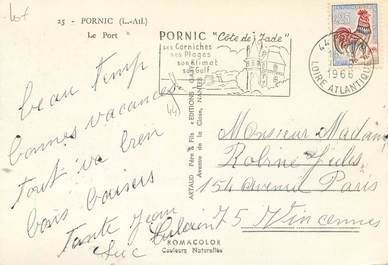 25 - PORNIC (L.-Atl.)
Le Port
PORNIC "Côte de Jade"
Ses Corniches
Ses Plages
Son Climat
Son Golf
44
1966
LOIRE ATLANTIQUE
0,25
beau temps
bonnes vacances
tout va bien
bons baisers
Tante Jean
Luc
ARTAUD Père & Fils - EDITIONS GABY
Avenue de la Close, NANTES
Monsieur Madame
Robine Jules
154 avenue Paris
75 Vincennes
ROMACOLOR
Couleurs Naturelles